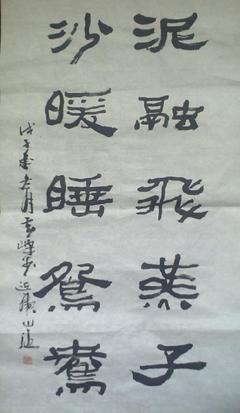 泥融飛燕子
沙暖睡鴛鴦
戊子